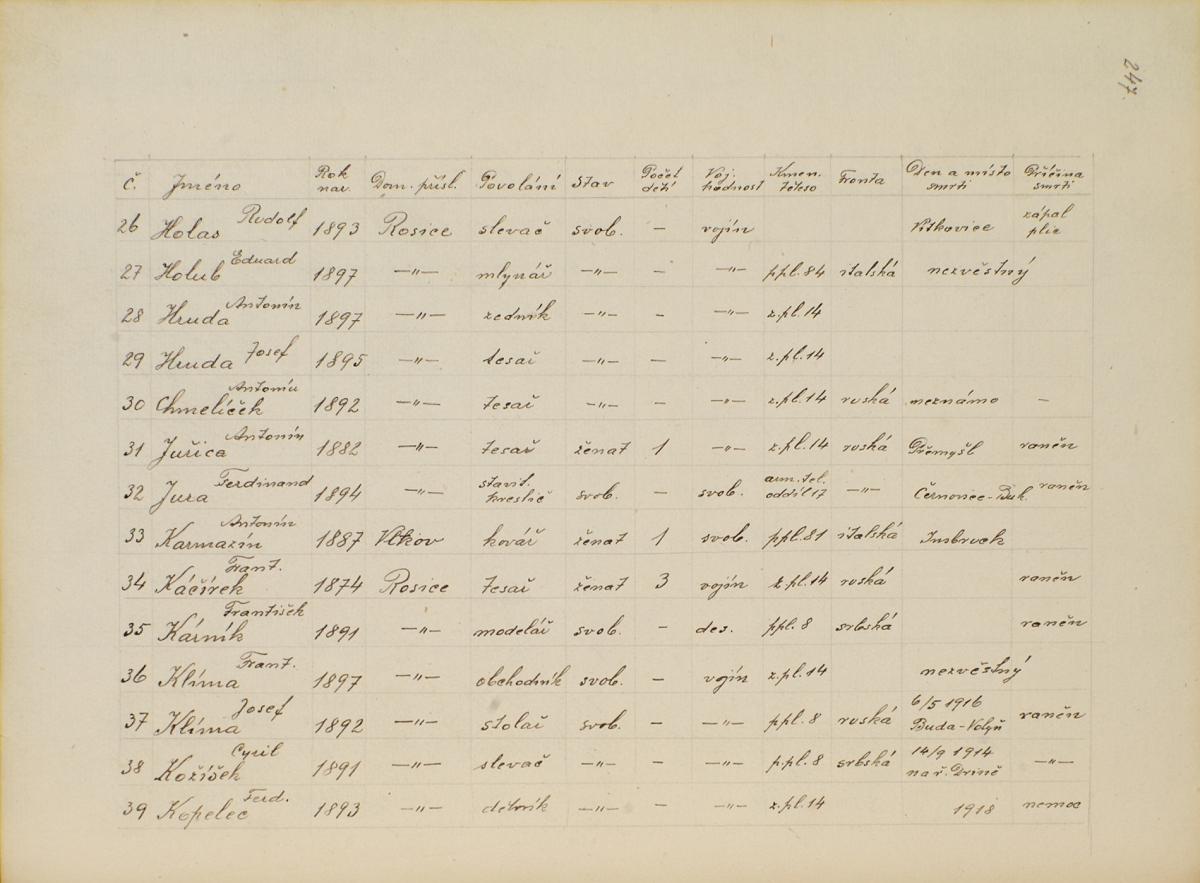 247.
č. Jméno Rok nar. Dom. přísl. Povolání Stav Počet dětí Voj. hodnost Kmen. těleso Fronta Den a místo smrti Příčina smrti
26 Holas Rudolf 1893 Rosice slevač svob. — vojín Vítkovice zápal plic
27 Holub Eduard 1897 —"— mlynář —"— — —"— ppl. 84 italská nezvěstný
28 Hruda Antonín 1897 —"— zedník —"— - —"— z.pl. 14
29 Hruda Josef 1895 —"— tesař —"— — —"— z.pl. 14
30 Chmelíček Antonín 1892 —"— tesař —"— — —"— z.pl. 14 ruská neznámo —
31 Juřica Antonín 1882 —"— tesař ženat 1 —"— z.pl. 14 ruská Přemyšl raněn
32 Jura Ferdinand 1894 —"— stavit. kreslič svob. — svob. arm. tel. oddíl 17 —"— Černovec-Buk. raněn
33 Karmazín Antonín 1887 Vlkov kovář ženat 1 svob. ppl. 81 italská Insbruck
34 Káčírek Frant. 1874 Rosice tesař ženat 3 vojín z.pl. 14 ruská raněn
35 Kárník František 1891 —"— modelář svob. — des. ppl. 8 srbská raněn
36 Klíma Frant. 1897 —"— obchodník svob. — vojín z.pl. 14 nezvěstný
37 Klíma Josef 1892 —"— stolař svob. — —"— ppl. 8 ruská 6/5 1916 Buda-Volyň raněn
38 Kožíšek Cyril 1891 —"— slevač —"— — —"— p.pl. 8 srbská 14/9 1914 na ř. Drině —"—
39 Kopelec Ferd. 1893 —"— dělník —"— — —"— z.pl. 14 1918 nemoc